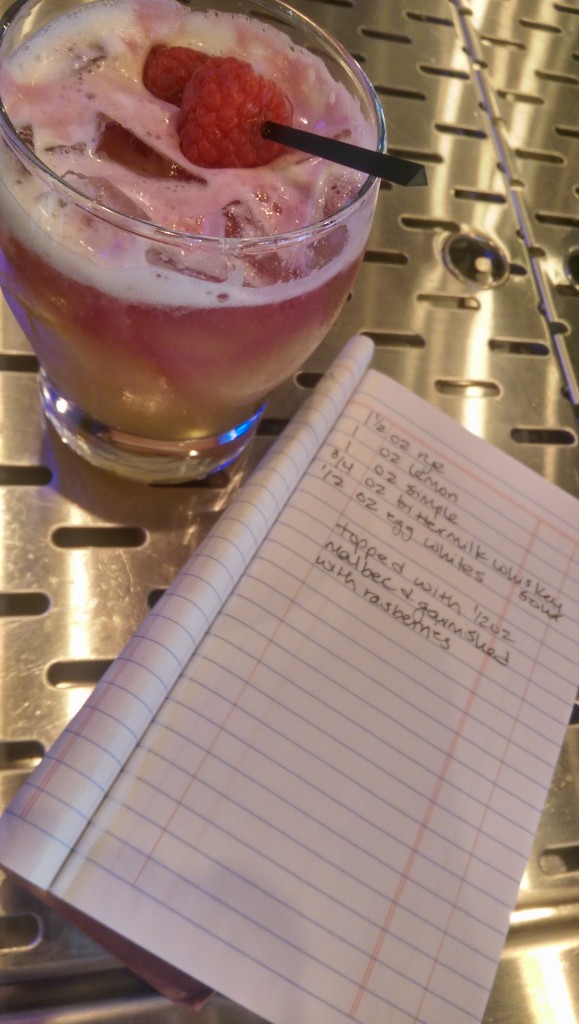 1 1/2 oz rye
1 oz lemon
1 oz simple
3/4 oz bittermilk whiskey sour
1/2 oz egg whites
topped with 1/2 oz
malbec & garnished
with rasberries